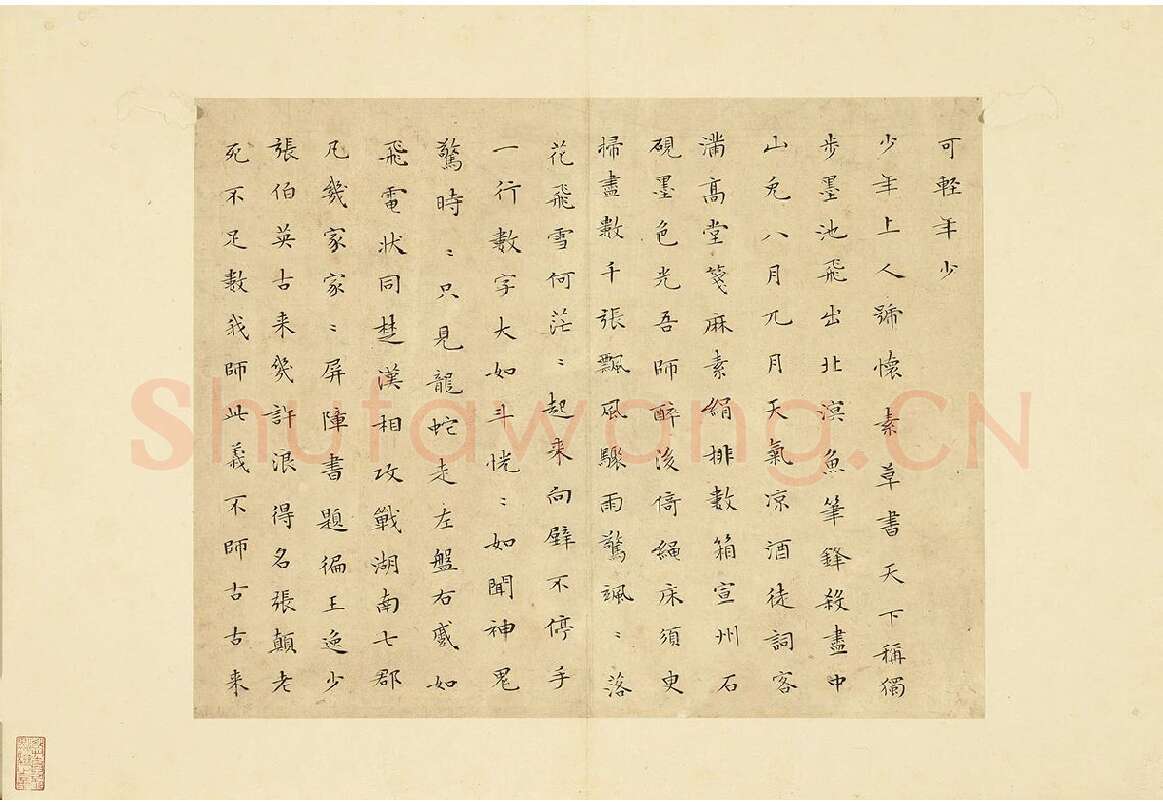 可輕年少
少年上人號懷素草書天下稱獨
步墨池飛出北溟魚筆鋒殺盡中
山兔八月九月天氣凉酒徒詞客
滿高堂箋麻素絹排數箱宣州石
硯墨色光吾師醉後倚繩床須臾
掃盡數千張飄風驟雨驚颯〻落
花飛雪何茫〻起来向壁不停手
一行數字大如斗恍〻如聞神鬼
驚時〻只見龍蛇走左盤右蹙如
飛電狀同楚漢相攻戰湖南七郡
凡幾家家〻屏障書題徧王逸少
張伯英古来幾許浪得名張顛老
死不足數我師此義不師古古来
Shufawang.CN